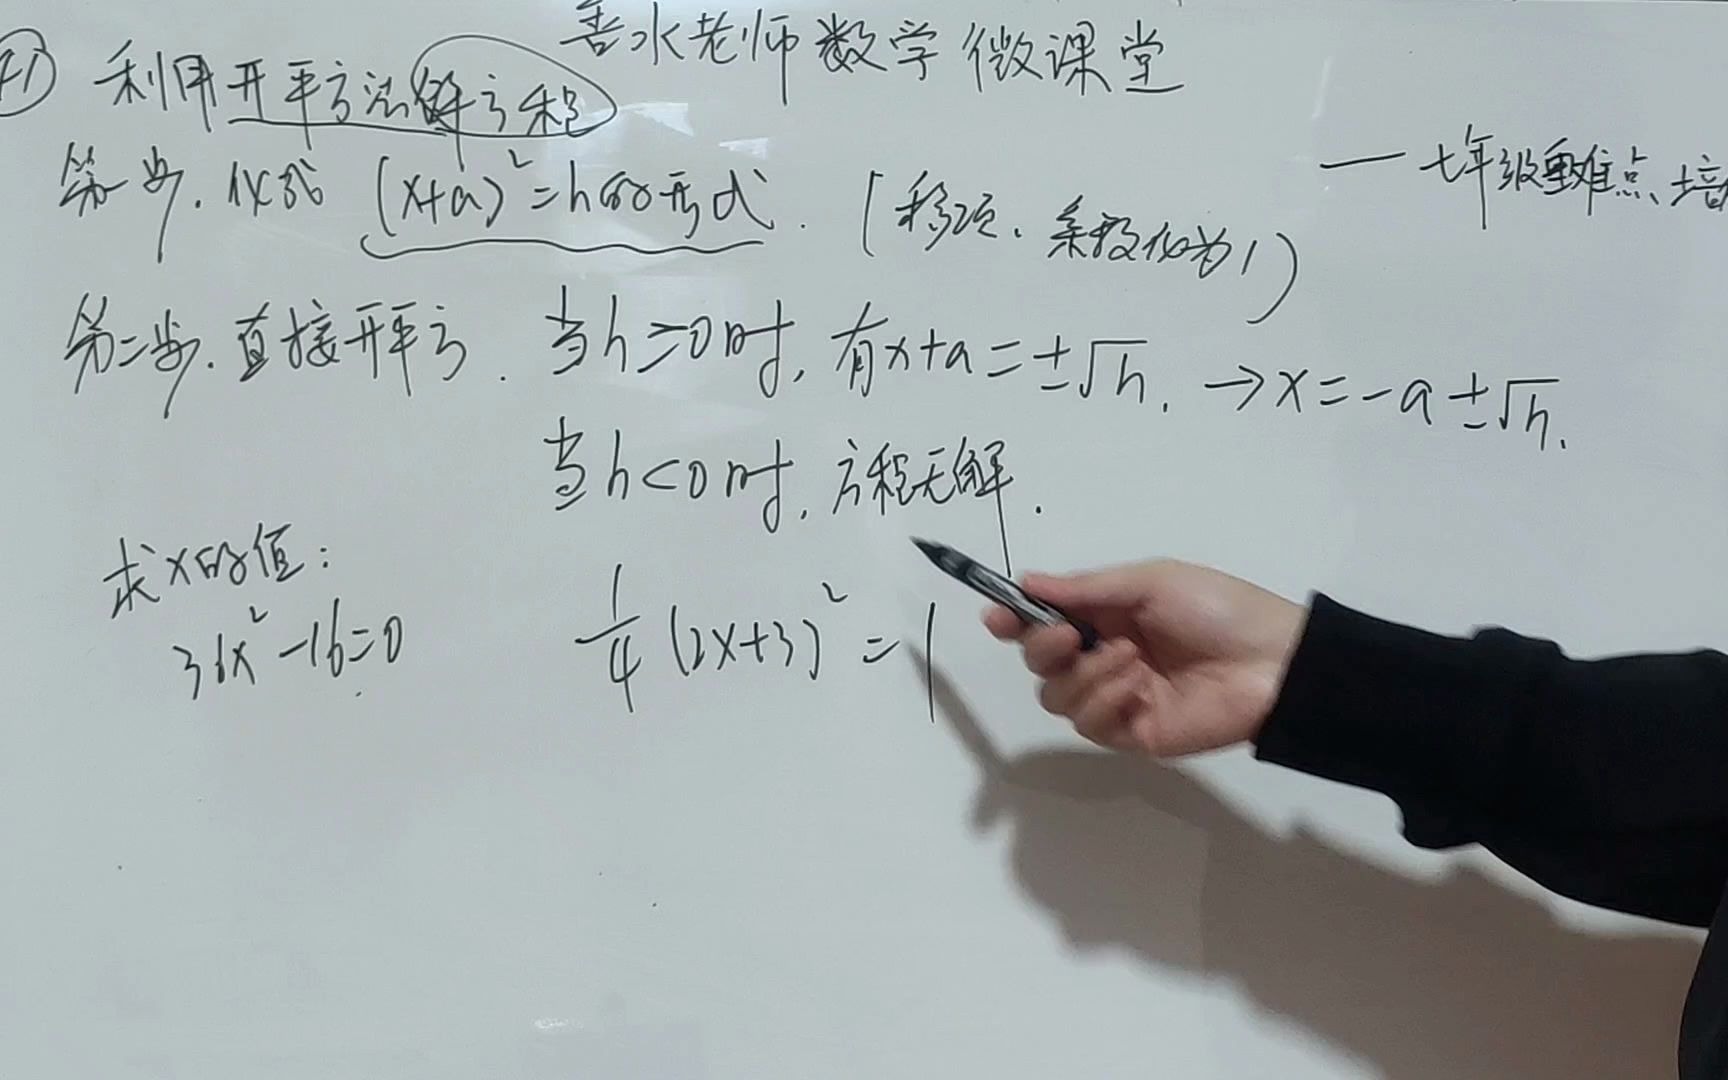 善水老师数学微课堂
利用开平方法解方程
—七年级重难点培
第一步. 化成 (x+a)²=h的形式. (移项、系数化为1)
第二步. 直接开平方. 当h≥0时, 有x+a=±√h. →x=-a±√h.
当h<0时, 方程无解.
求x的值:
36x²-16=0 1/4(2x+3)²=1